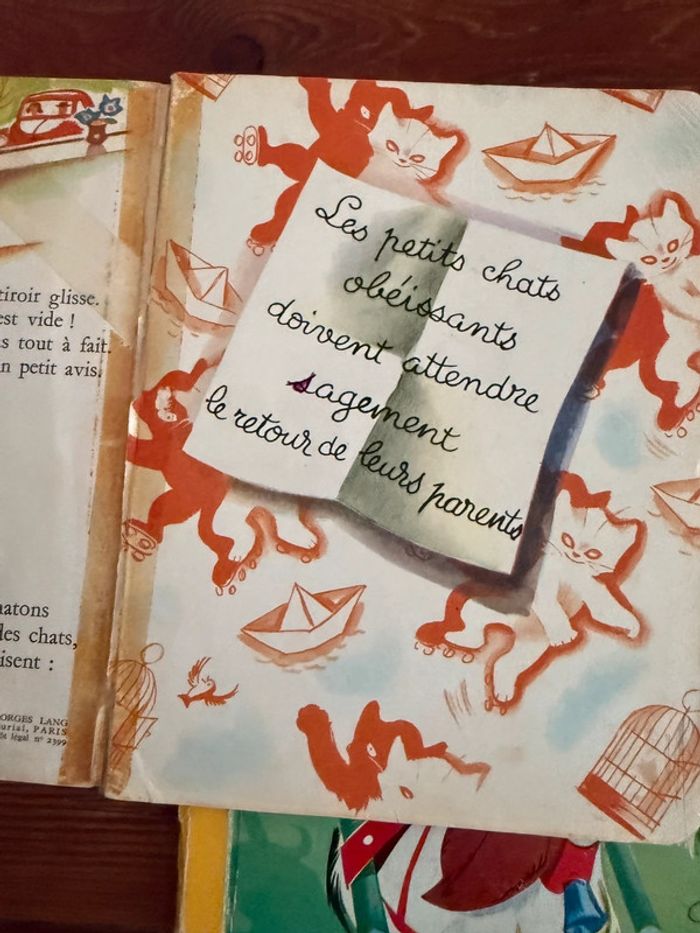 tiroir glisse.
est vide !
s tout à fait.
n petit avis.
atons
les chats,
isent :
ORGES LANG
urial, PARIS
légal nº 2399
Les petits chats
obéissants
doivent attendre
sagement
le retour de leurs parents